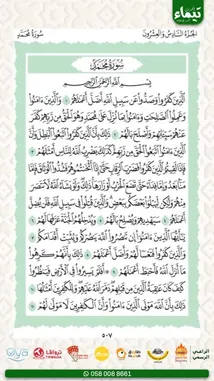 تيماء
الجزء السادس والعشرون
سورة محمد
سورة محمد
بسم الله الرحمن الرحيم
الذين كفروا وصدوا عن سبيل الله أضل أعمالهم ١ والذين ءامنوا
وعملوا الصالحات وءامنوا بما نزل على محمد وهو الحق من ربهم كفر
عنهم سيئاتهم وأصلح بالهم ٢ ذلك بأن الذين كفروا اتبعوا الباطل وأن
الذين ءامنوا اتبعوا الحق من ربهم كذلك يضرب الله للناس أمثالهم ٣
فإذا لقيتم الذين كفروا فضرب الرقاب حتى إذا أثخنتموهم فشدوا الوثاق فإما
منا بعد وإما فداء حتى تضع الحرب أوزارها ذلك ولو يشاء الله لانتصر
منهم ولكن ليبلوا بعضكم ببعض والذين قتلوا في سبيل الله فلن يضل
أعمالهم ٤ سيهديهم ويصلح بالهم ٥ ويدخلهم الجنة عرفها لهم ٦
يا أيها الذين ءامنوا إن تنصروا الله ينصركم ويثبت أقدامكم ٧
والذين كفروا فتعسا لهم وأضل أعمالهم ٨ ذلك بأنهم كرهوا
ما أنزل الله فأحبط أعمالهم ٩ أفلم يسيروا في الأرض فينظروا
كيف كان عاقبة الذين من قبلهم دمر الله عليهم وللكافرين أمثالها ١٠
ذلك بأن الله مولى الذين ءامنوا وأن الكافرين لا مولى لهم ١١
٥٠٧
الراعي
الرسمي
058 008 8661